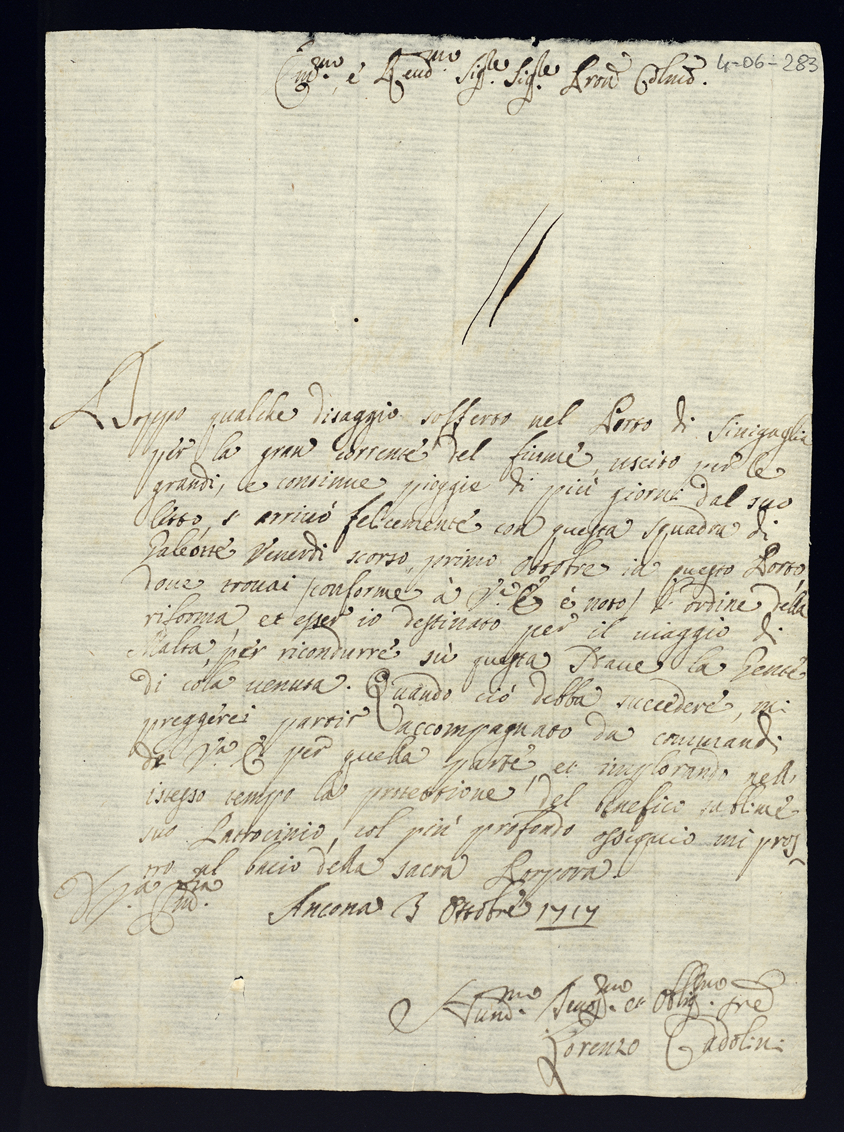 4-06-283
Em.mo, e Reud.mo Sig.re Sig.re Pron Colmo.
Doppo qualche disaggio sofferto nel Porto di Sinigaglia
per la gran corrente del fiume, uscito per le
grandi, e continue pioggie di più giorni dal suo
letto, s'arrivó felicemente con questa squadra di
Galeotte Venerdi scorso, primo Ottobre in questo Porto,
doue trouai (conforme à V.a E è noto) l'ordine della
riforma et esser io destinato per il viaggio di
Malta, per ricondurre sù questa Naue la Gente
di colà uenuta. Quando ciò debba succedere, mi
preggerei partir accompagnato da comandi
di V.a E per quella parte, et implorando nell'
istesso tempo la protettione, del benefico sublime
suo Patrocinio, col più profondo ossequio mi pros-
tro al bacio della sacra Porpora.
D V.a Em.za
Ancona 3 Ottobre 1717
Hum.mo Deuot.mo et Oblig.mo sre
Lorenzo Cadolini